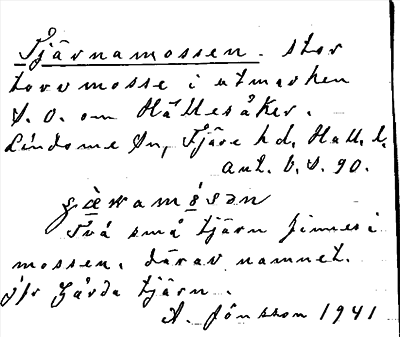 Tjärnamossen. stor
torvmosse i utmarken
S. O. om Hällesåker.
Lindome sn, Fjäre hd, Hall. l.
ant. b. s. 90.
Två små tjärn finnes i
mossen, därav namnet.
jfr Gårda tjärn.
A. Jönsson 1941